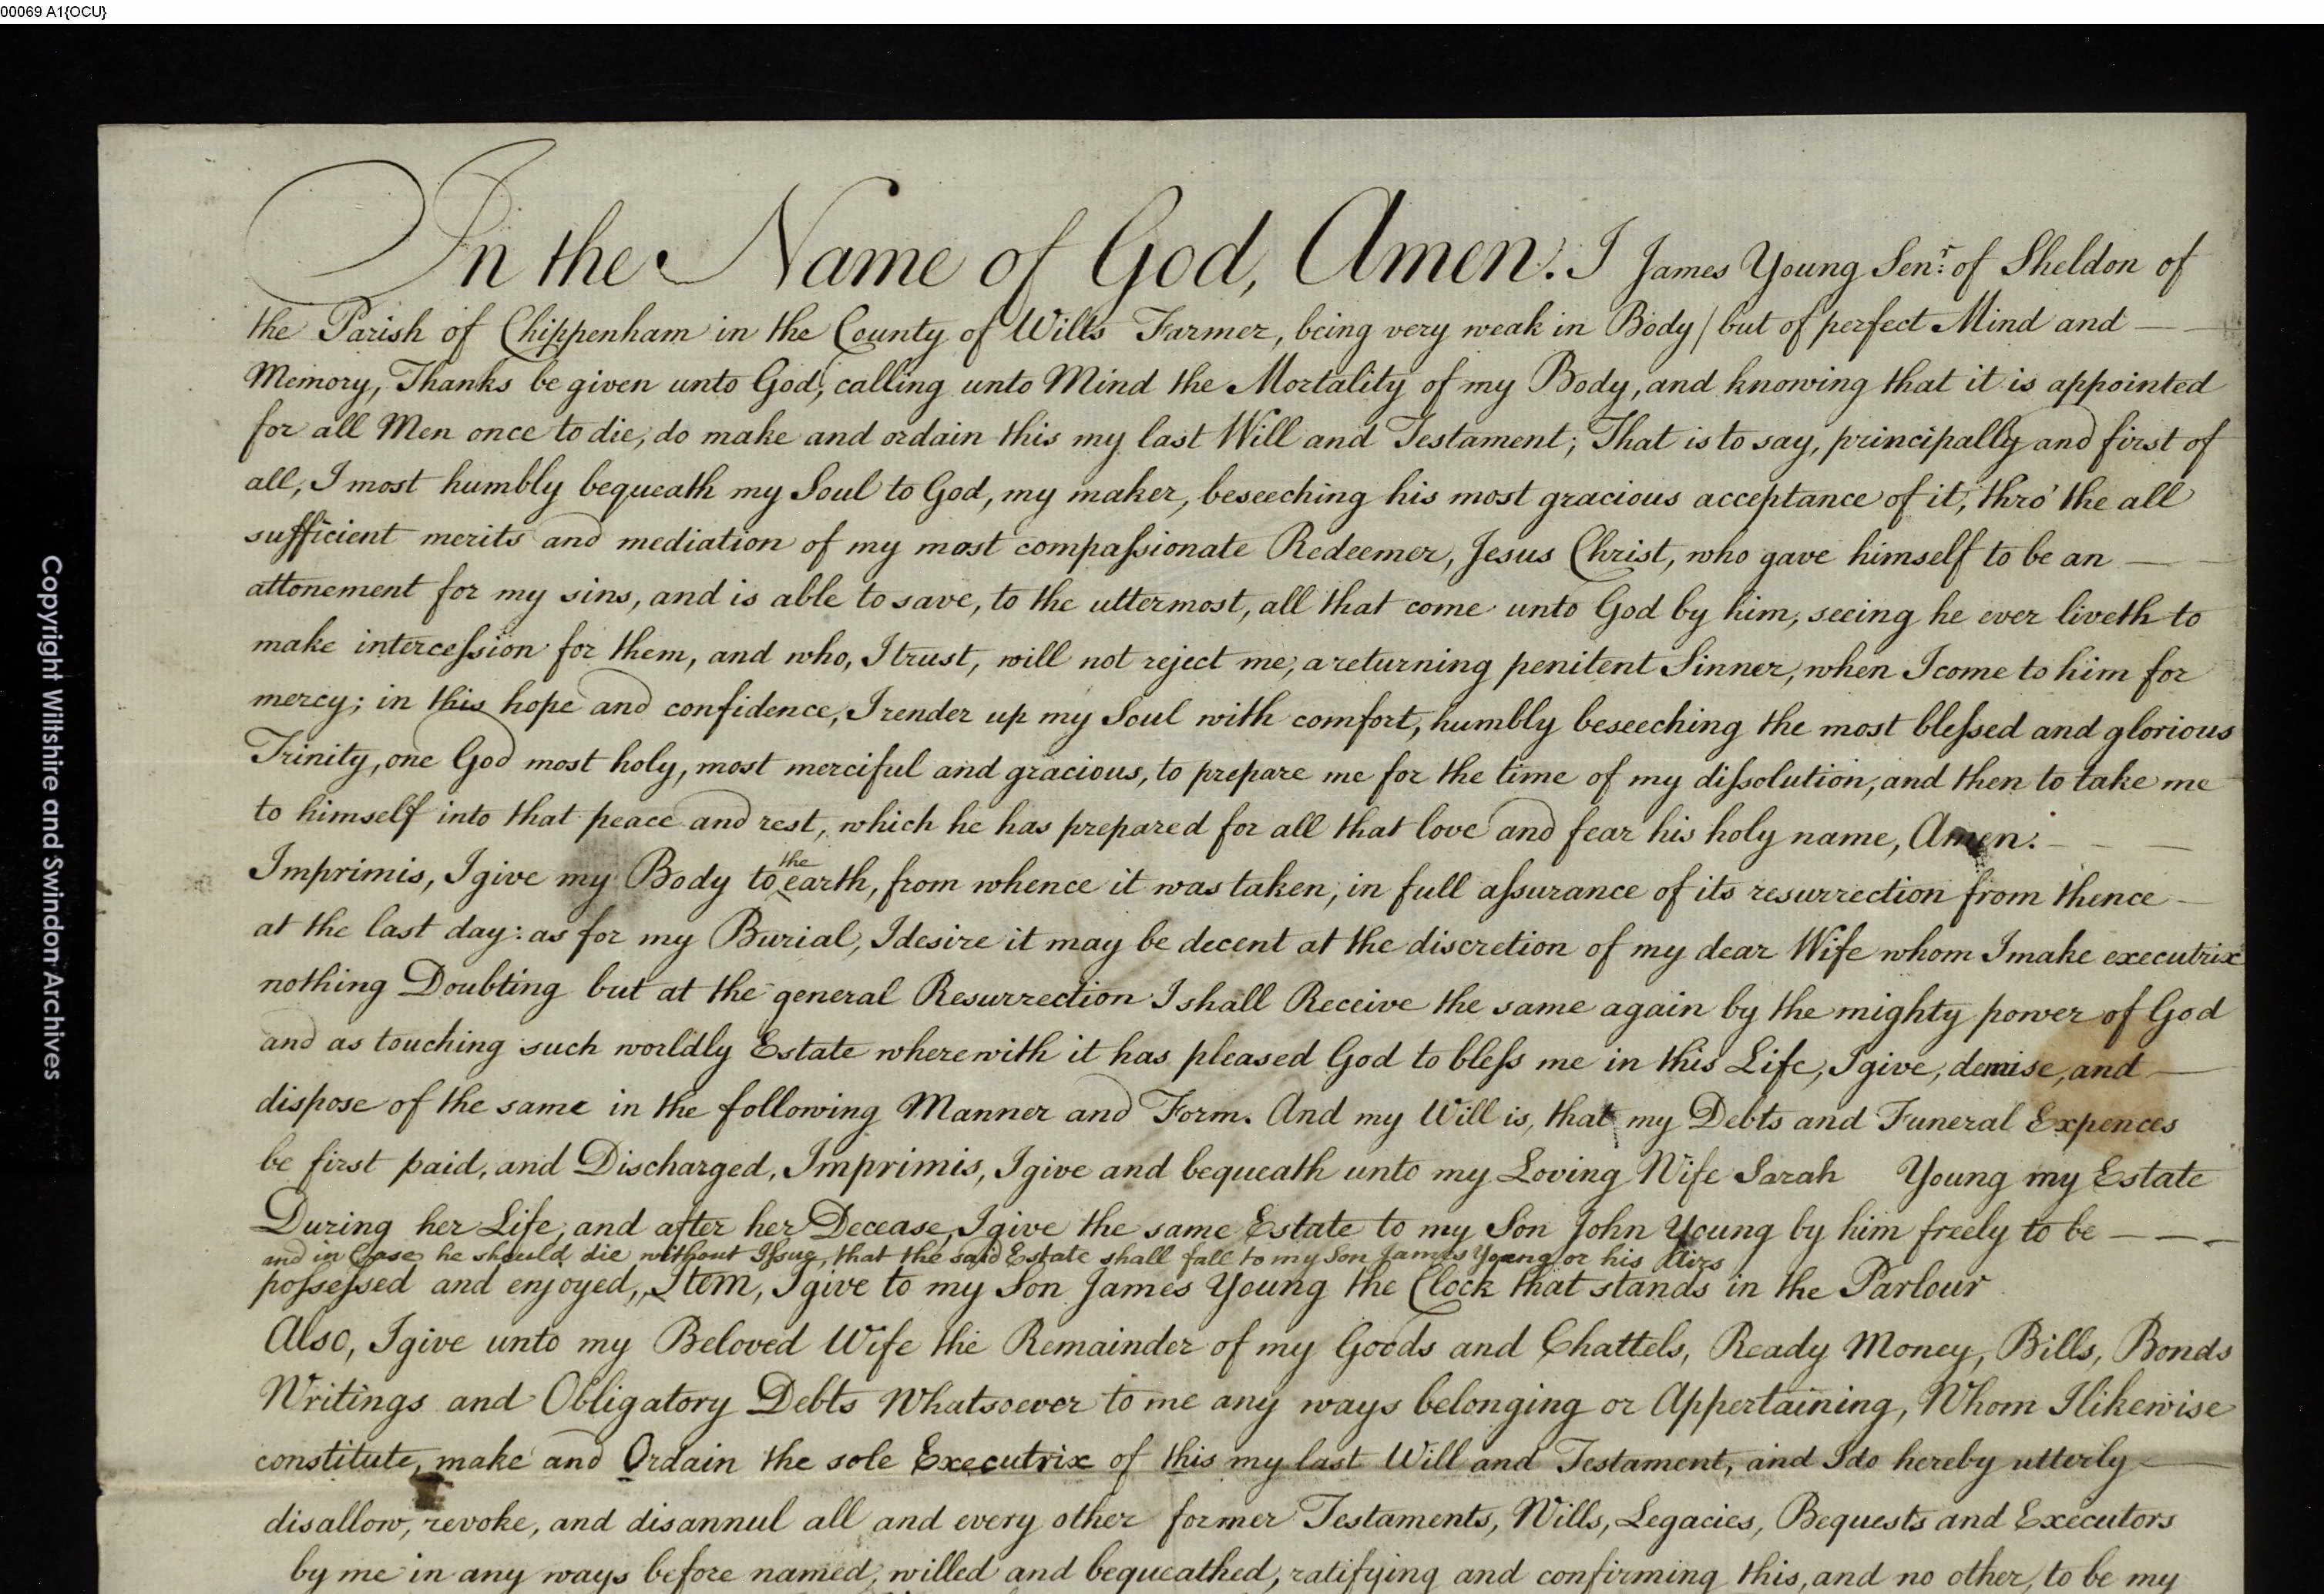 00069 A1{OCU}
In the Name of God, Amen. I James Young Senr. of Sheldon of
the Parish of Chippenham in the County of Wilts Farmer, being very weak in Body / but of perfect Mind and —
Memory, Thanks be given unto God, calling unto Mind the Mortality of my Body, and knowing that it is appointed
for all Men once to die, do make and ordain this my last Will and Testament; That is to say, principally and first of
all, I most humbly bequeath my Soul to God, my maker, beseeching his most gracious acceptance of it, thro' the all
sufficient merits and mediation of my most compaſsionate Redeemer, Jesus Christ, who gave himself to be an —
attonement for my sins, and is able to save, to the uttermost, all that come unto God by him, seeing he ever liveth to
make interceſsion for them, and who, I trust, will not reject me, a returning penitent Sinner, when I come to him for
mercy; in this hope and confidence, I render up my Soul with comfort, humbly beseeching the most bleſsed and glorious
Trinity, one God most holy, most merciful and gracious, to prepare me for the time of my diſsolution, and then to take me
to himself into that peace and rest, which he has prepared for all that love and fear his holy name, Amen. — — —
Imprimis, I give my Body to the earth, from whence it was taken, in full aſsurance of its resurrection from thence —
at the last day: as for my Burial, I desire it may be decent at the discretion of my dear Wife whom I make executrix
nothing Doubting but at the general Resurrection I shall Receive the same again by the mighty power of God
and as touching such worldly Estate wherewith it has pleased God to bleſs me in this Life, I give, demise, and —
dispose of the same in the following Manner and Form. And my Will is, that my Debts and Funeral Expences
be first paid, and Discharged, Imprimis, I give and bequeath unto my Loving Wife Sarah Young my Estate
During her Life, and after her Decease, I give the same Estate to my Son John Young by him freely to be — — —
and in Case he should die without Iſsue, that the said Estate shall fall to my Son James Young or his Airs
poſseſsed and enjoyed, Item, I give to my Son James Young the Clock that stands in the Parlour
Also, I give unto my Beloved Wife the Remainder of my Goods and Chattels, Ready Money, Bills, Bonds
Writings and Obligatory Debts Whatsoever to me any ways belonging or Appertaining, Whom I likewise
constitute, make and Ordain the sole Executrix of this my last Will and Testament, and I do hereby utterly —
disallow, revoke, and disannul all and every other former Testaments, Wills, Legacies, Bequests and Executors
by me in any ways before named, willed and bequeathed, ratifying and confirming this, and no other, to be my
Copyright Wiltshire and Swindon Archives